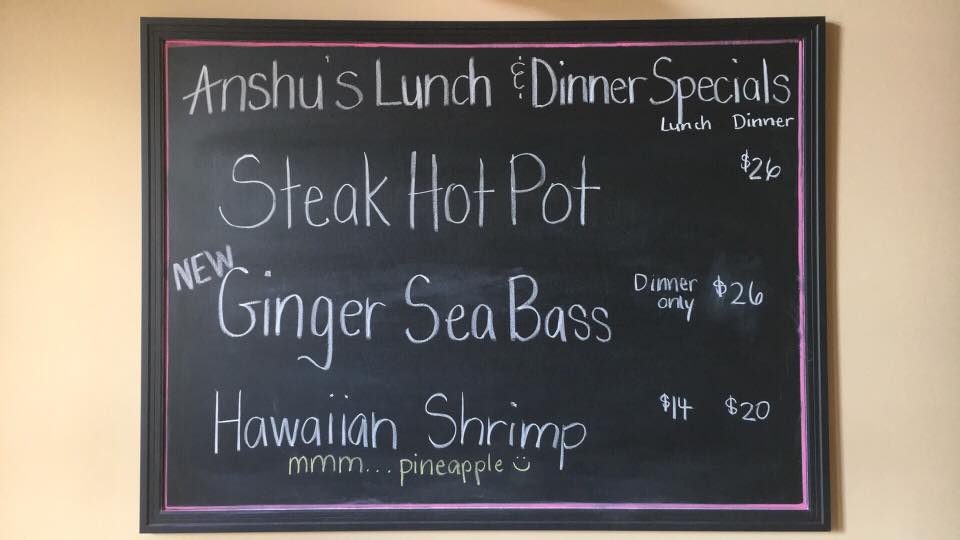 Anshu's Lunch & Dinner Specials
Lunch Dinner
Steak Hot Pot $26
NEW
Ginger Sea Bass Dinner only $26
Hawaiian Shrimp $14 $20
mmm... pineapple